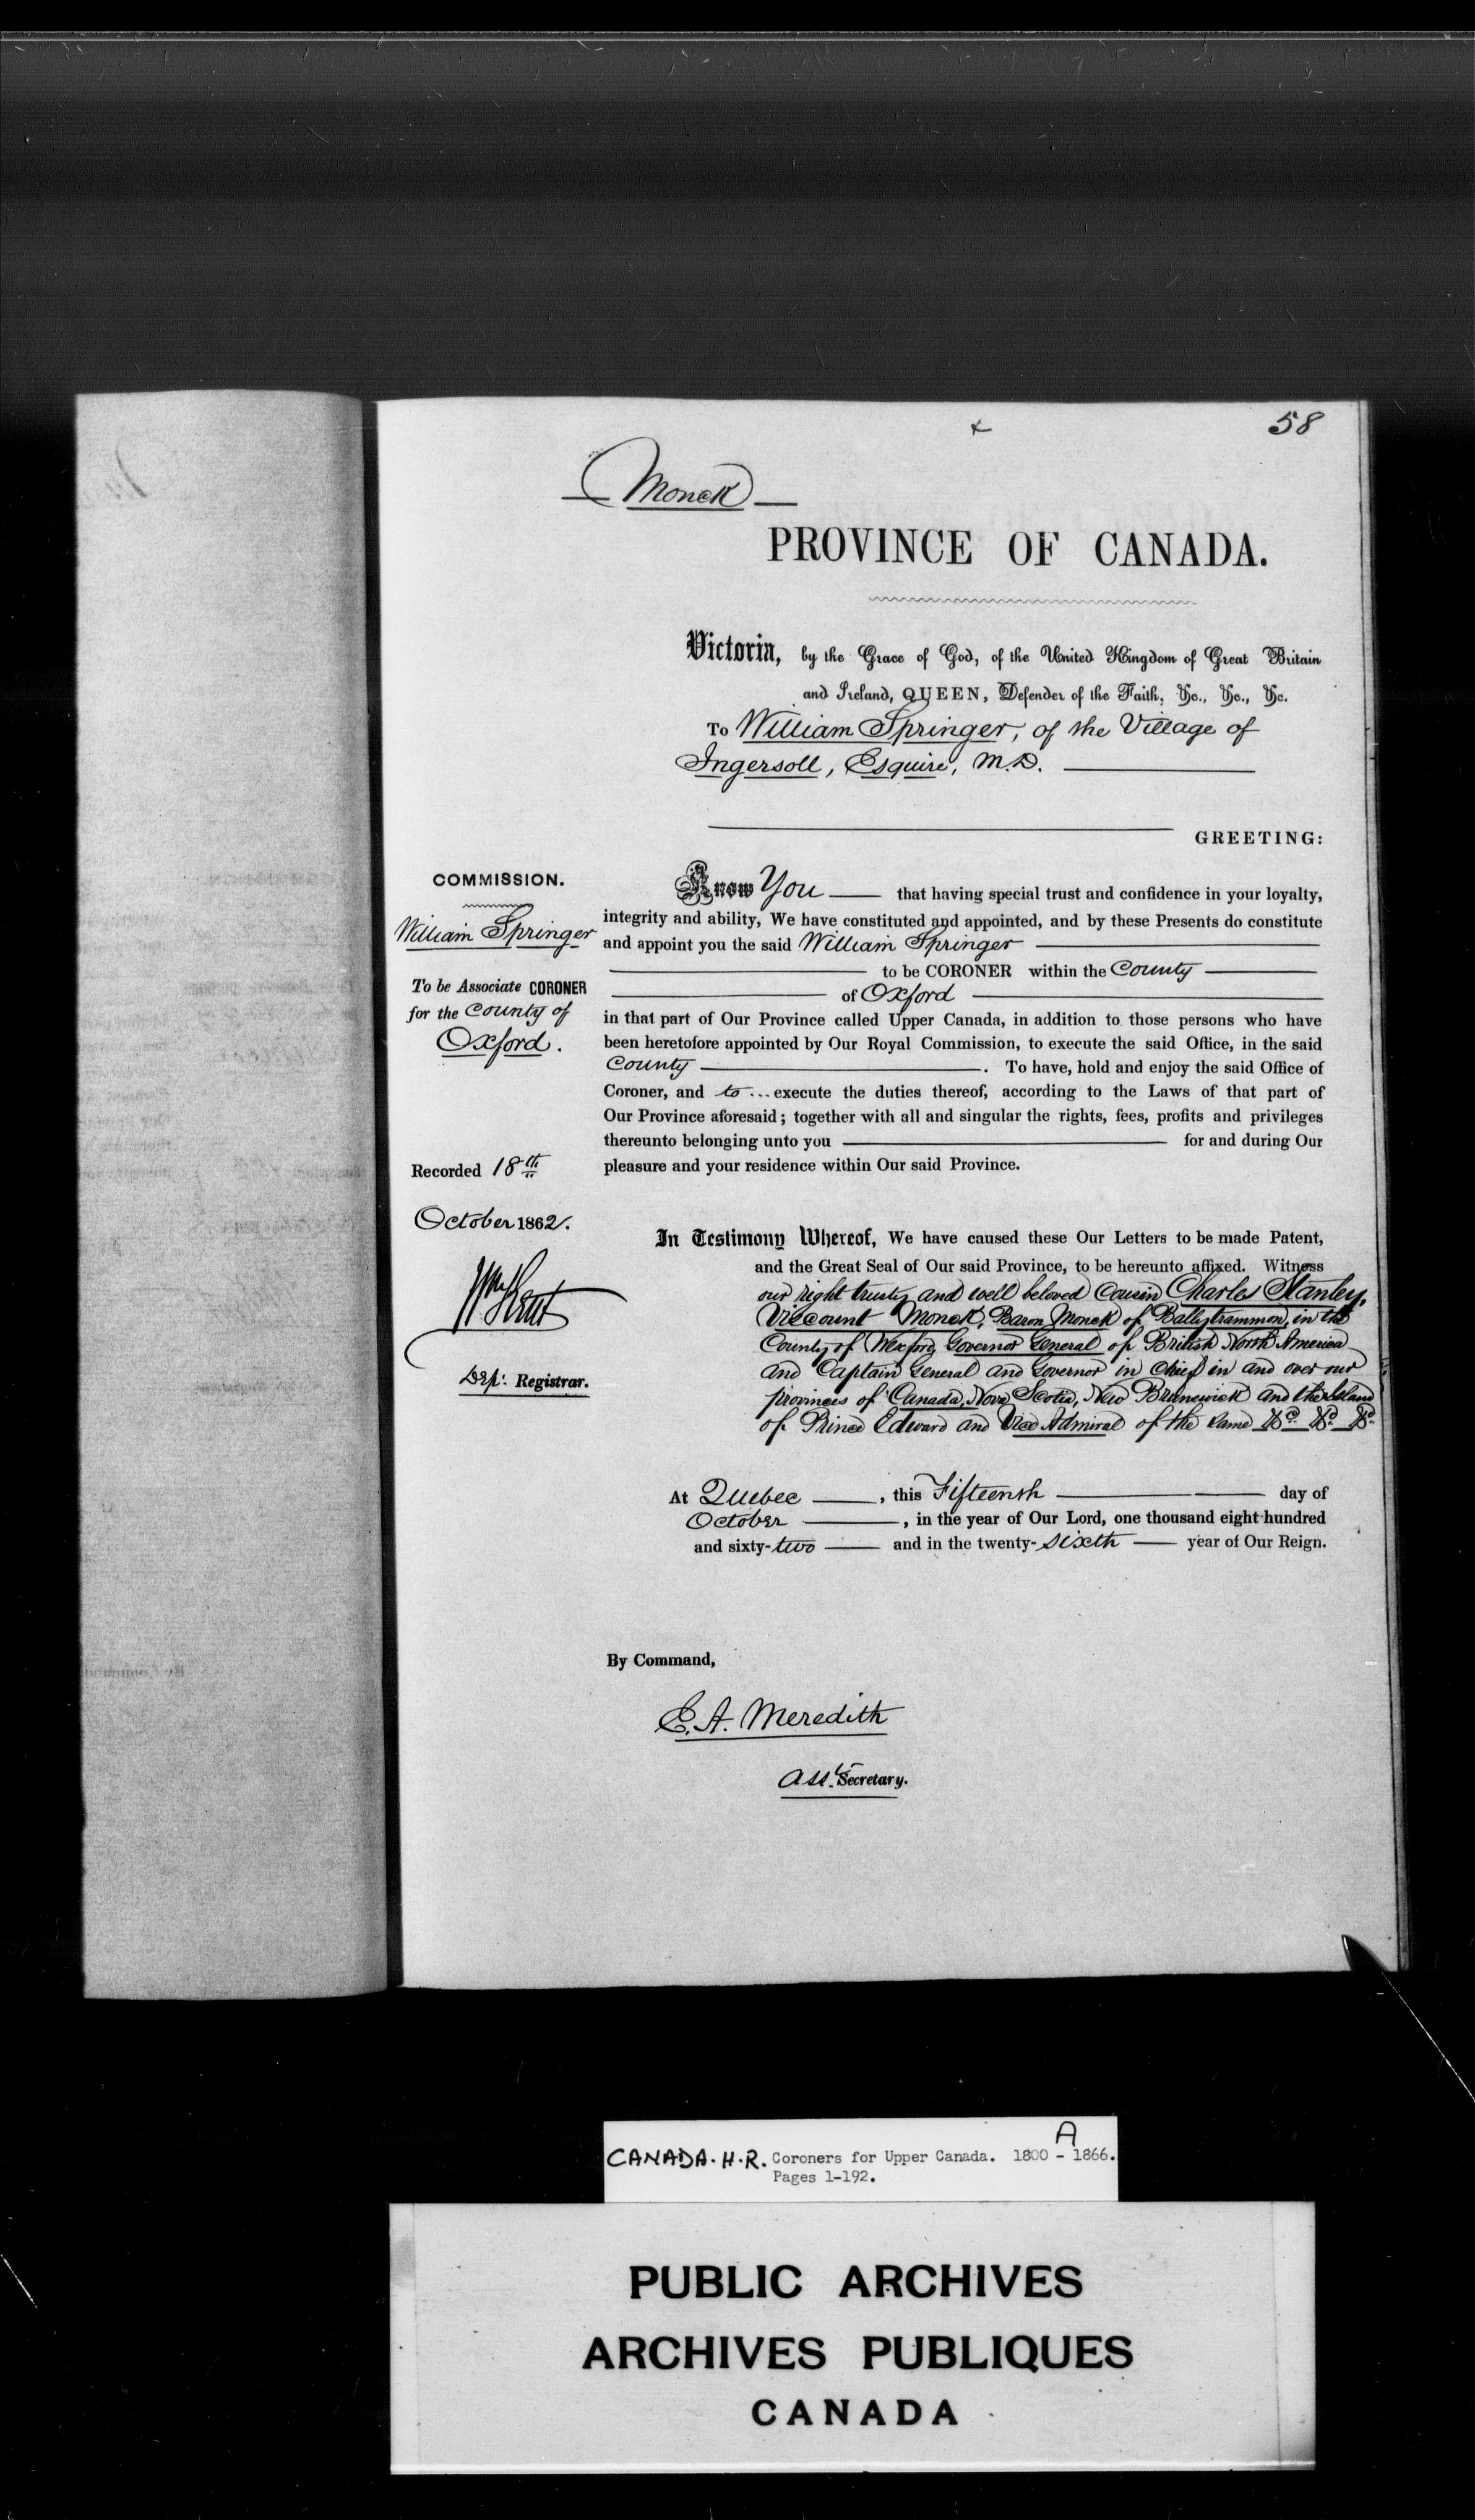 58
Monck
PROVINCE OF CANADA.
Victoria, by the Grace of God, of the United Kingdom of Great Britain
and Ireland, QUEEN, Defender of the Faith, &c., &c., &c.
To William Springer, of the Village of
Ingersoll, Esquire, M.D.
GREETING:
COMMISSION.
William Springer
To be Associate CORONER
for the County of
Oxford.
Recorded 18th
October 1862.
Dep: Registrar.
Know You that having special trust and confidence in your loyalty,
integrity and ability, We have constituted and appointed, and by these Presents do constitute
and appoint you the said William Springer
to be CORONER within the County
of Oxford
in that part of Our Province called Upper Canada, in addition to those persons who have
been heretofore appointed by Our Royal Commission, to execute the said Office, in the said
County . To have, hold and enjoy the said Office of
Coroner, and to ... execute the duties thereof, according to the Laws of that part of
Our Province aforesaid; together with all and singular the rights, fees, profits and privileges
thereunto belonging unto you for and during Our
pleasure and your residence within Our said Province.
In Testimony Whereof, We have caused these Our Letters to be made Patent,
and the Great Seal of Our said Province, to be hereunto affixed. Witness
our right trusty and well beloved Cousin Charles Stanley,
Viscount Monck, Baron Monck of Ballytrammon, in the
County of Wexford, Governor General of British North America
and Captain General and Governor in Chief in and over our
provinces of Canada, Nova Scotia, New Brunswick and the Island
of Prince Edward and Vice Admiral of the same &c. &c. &c.
At Quebec , this Fifteenth day of
October , in the year of Our Lord, one thousand eight hundred
and sixty-two and in the twenty-sixth year of Our Reign.
By Command,
E. A. Meredith
Asst. Secretary.
CANADA. H.R. Coroners for Upper Canada. 1800 - 1866. A
Pages 1-192.
PUBLIC ARCHIVES
ARCHIVES PUBLIQUES
CANADA